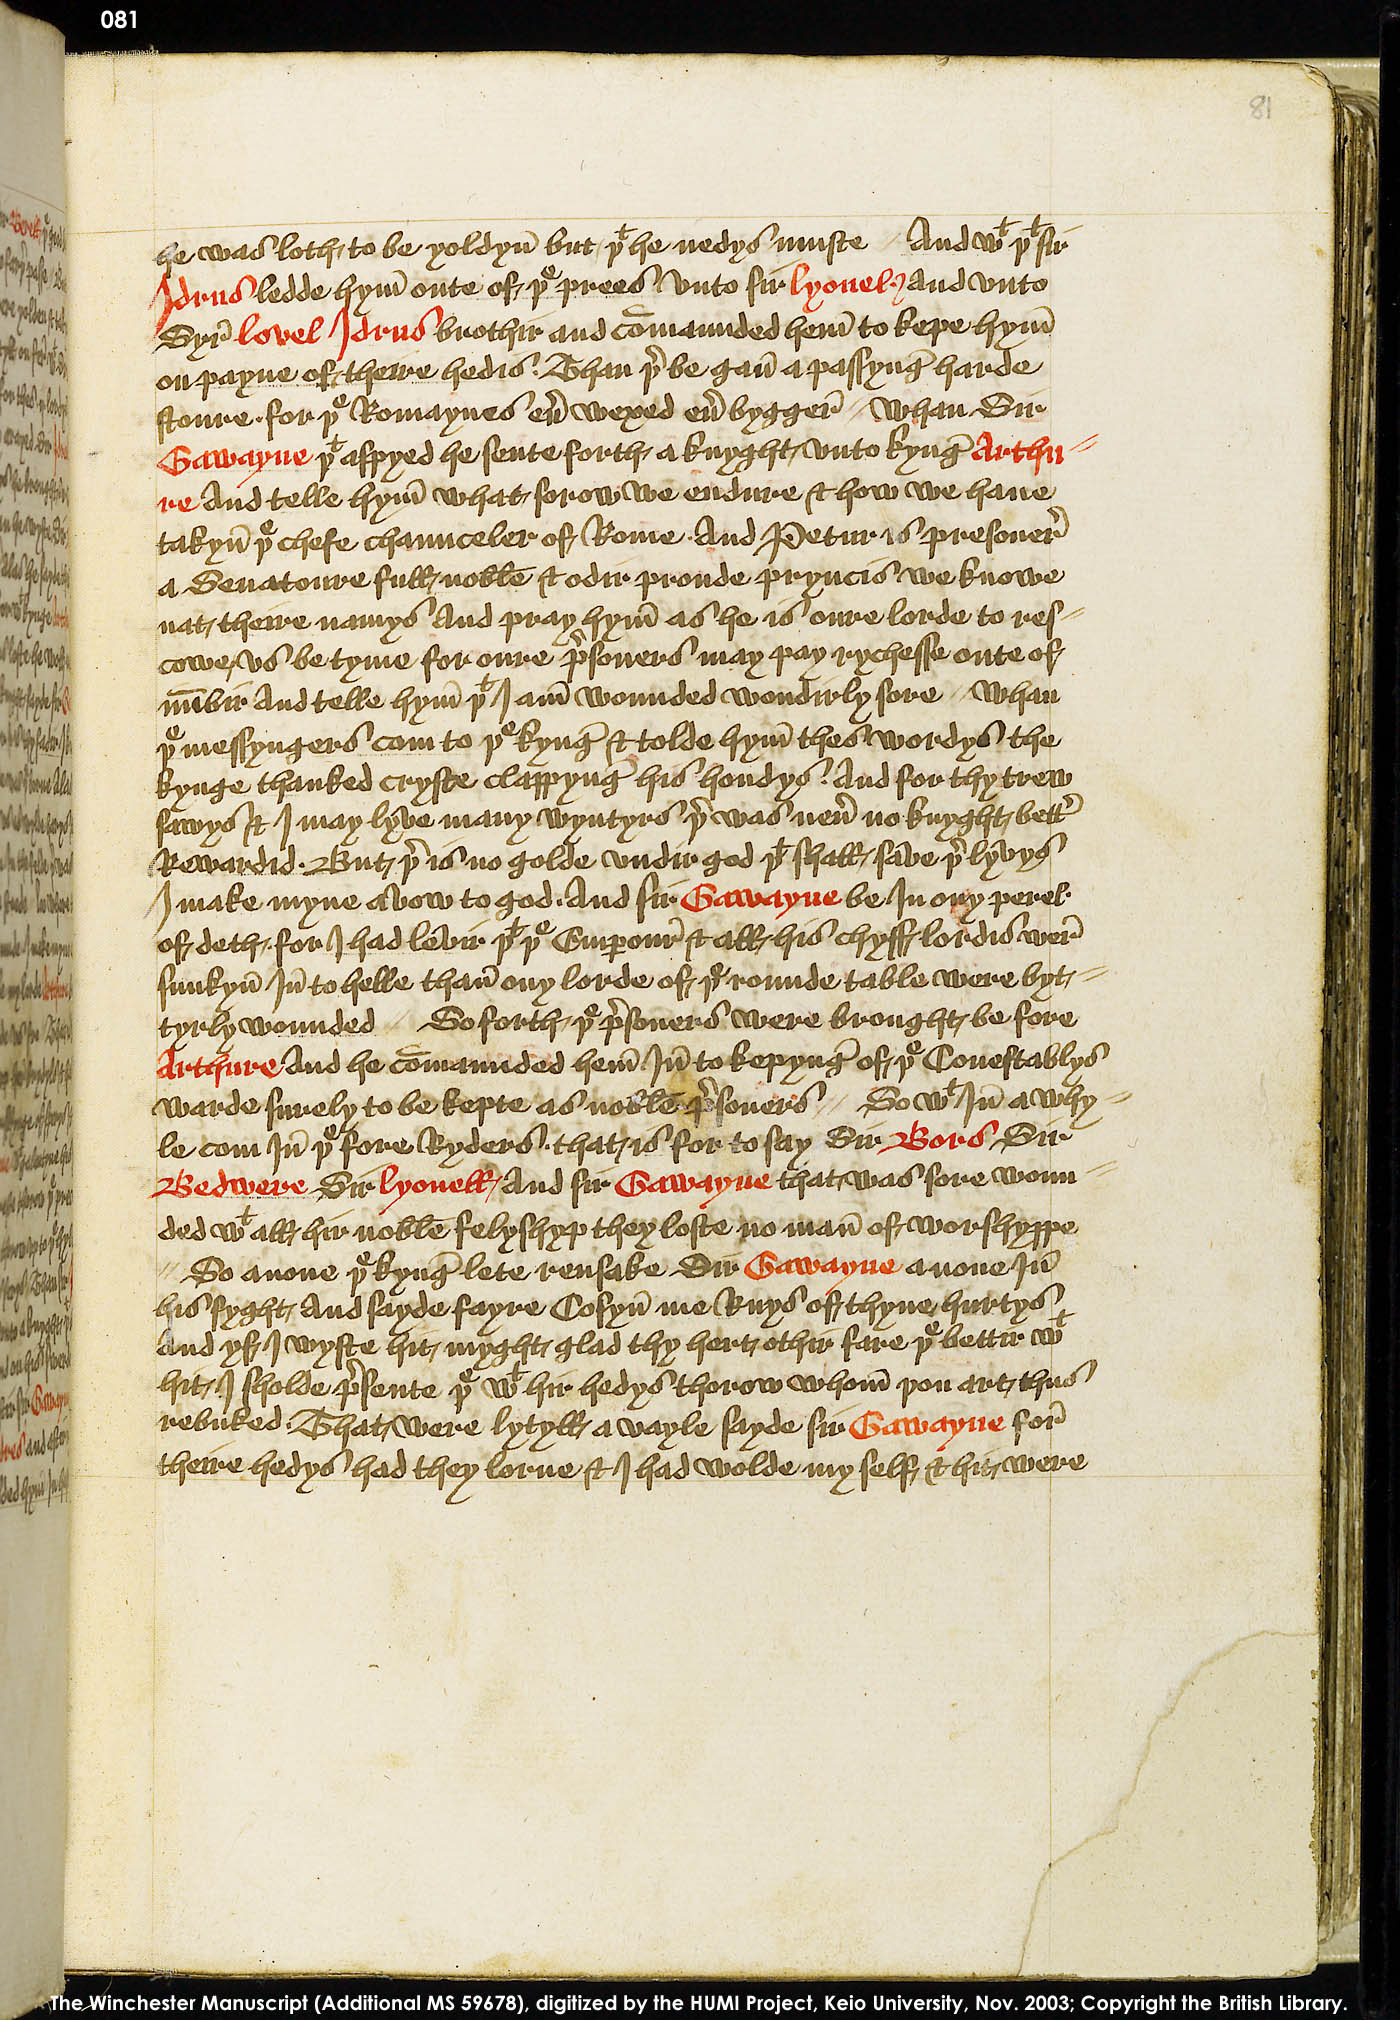 081
81
he was loth to be yoldyn̄ but þᵗ he nedys muste // And wᵗ þᵗ sir
Idrus ledde hym̄ oute of þᵉ prees vnto sir lyonel And vnto
Syr̄ lovel Idrus brothir and cōmaunded hem̄ to kepe hym̄
on payne of theire hedis. Than þʳ be gan̄ a passynḡ harde
stoure. for þᵉ Romaynes eū wexed eū bygger̄ // Whan Sir
Gawayne þᵗ aspyed he sente forth a knyght vnto kynḡ Arthu //
re And telle hym̄ what sorow we endure & how we haue
takyn̄ þᵉ chefe chaunceler of Rome. And Petur is presoner̄
a Senatoure full noble & odir proude pryncis we knowe
nat theire namys And pray hym̄ as he is oure lorde to res⸗
cowe vs be tyme for oure pʳsoners may pay rychesse oute of
nū̄bir And telle hym̄ þᵗ I am̄ wounded wondirly sore // Whan
þᵉ messyngers com to þᵉ kynḡ & tolde hym̄ thes wordys the
kynge thanked cryste clappynḡ his hondys. And for thy trew
sawys & I may lyve many wyntyrs þʳ was neū no knyght bettʳ
Rewardid. But þʳ is no golde vndir god þᵗ shall save þʳ lyvys
I make myne avow to god. And sir Gawayne be In ony perel
of deth. for I had levir þᵗ þᵉ Emperour̄ & all his chyff lordis wer̄
sunkyn̄ In̄ to helle than̄ ony lorde of þᵉ rounde table were byt //
tyrly wounded // So forth þᵉ pʳsoners were brought be fore
Arthure And he cōmaunded hem̄ In̄ to kepynḡ of þᵉ Conestablys
warde surely to be kepte as noble pʳsoners // So wᵗ In̄ a why //
le com In̄ þᵉ fore Ryders. that is for to say Sir Bors Sir
Bedwere Sir lyonell And sir Gawayne that was sore woun //
ded wᵗ all hir noble felyshyp they loste no man̄ of worshyppe
// So anone þᵉ kynḡ lete ransake Sir Gawayne anone In̄
his syght And sayde fayre Cosyn̄ me Ruys of thyne hurtys
And yf I wyste hit myght glad thy hert othir fare þᵉ bettir wᵗ
hit I sholde pʳsente þᵉ wᵗ hir hedys thorow whom̄ þou art thus
rebuked. That were lytyll a vayle sayde sir Gawayne for̄
theire hedys had they lorne & I had wolde my self & hit were
The Winchester Manuscript (Additional MS 59678), digitized by the HUMI Project, Keio University, Nov. 2003; Copyright the British Library.